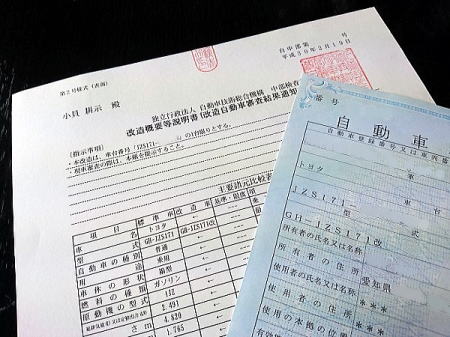 第2号様式(書面)
自中部業 号
平成30年2月19日
小貝 耕示 殿
独立行政法人 自動車技術総合機構 中部検査
改造概要等説明書(改造自動車審査結果通知
(指示事項)
・本改造は、車台番号(JZS171- )の1台限りとする。
・現車審査の際は、本紙を提示すること。
主要諸元比較表
項目 標準車 改造車 基準・限度 項
車名 トヨタ ←
型式 GH-JZS171 GH-JZS171改
自動車の種別 普通 ←
用途 乗用 ←
車体の形状 箱型 ←
燃料の種類 ガソリン ←
原動機の型式 1JZ ←
2.491 ←
さ m 4.820 ←
1.765 ←
番号
自動車
自動車登録番号又は車両番
トヨタ 車
JZS171- 車台
型式
GH-JZS171改
所有者の氏名又は名称
所有者の住所 愛知県
使用者の氏名又は名称 ***
使用者の住所 ***
使用の本拠の位置 ***
有効